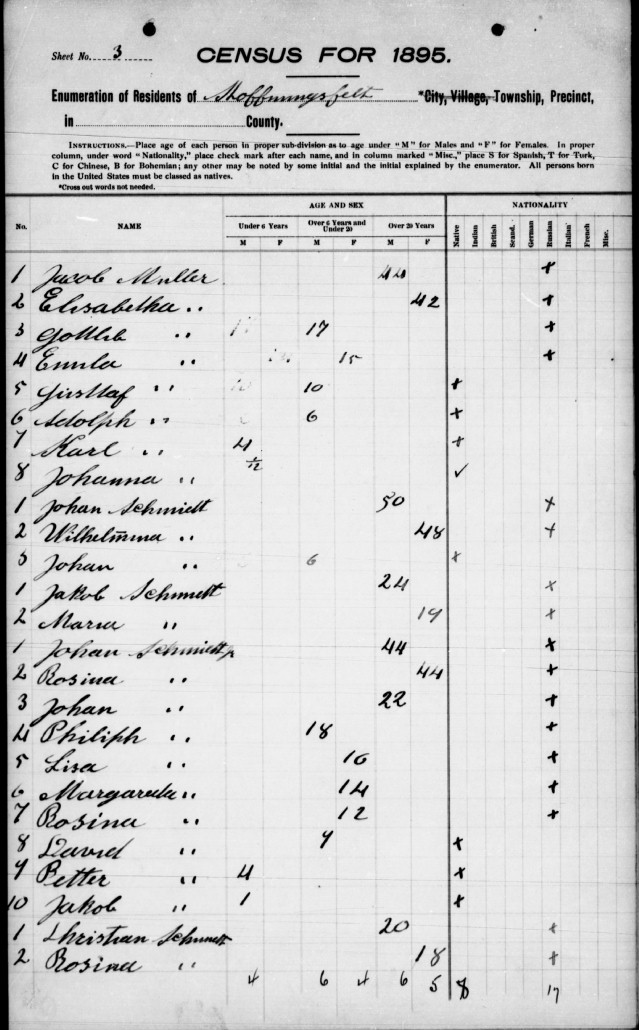 Sheet No. 3
CENSUS FOR 1895.
Enumeration of Residents of Hoffnungsfelt *City, Village, Township, Precinct,
in County.
INSTRUCTIONS.—Place age of each person in proper sub-division as to age under "M" for Males and "F" for Females. In proper
column, under word "Nationality," place check mark after each name, and in column marked "Misc.," place S for Spanish, T for Turk,
C for Chinese, B for Bohemian; any other may be noted by some initial and the initial explained by the enumerator. All persons born
in the United States must be classed as natives.
*Cross out words not needed.
AGE AND SEX NATIONALITY
No. NAME Under 6 Years Over 6 Years and Under 20 Over 20 Years Native Indian British Scand. German Russian Italian French Misc.
M F M F M F
1 Jacob Muller 44 x
2 Elisabetha " 42 x
3 Gottlib " 17 x
4 Emila " 15 x
5 Gusttaf " 10 x
6 Adolph " 6 x
7 Karl " 4 x
8 Johanna " 1/12 ✓
1 Johan Schmidt 50 x
2 Wilhelmina " 48 x
3 Johan " 6 x
1 Jakob Schmidt 24 x
2 Maria " 19 x
1 Johan Schmidt 44 x
2 Rosina " 44 x
3 Johan " 22 x
4 Philiph " 18 x
5 Lisa " 16 x
6 Margareta " 14 x
7 Rosina " 12 x
8 David " 9 x
9 Petter " 4 x
10 Jakob " 1 x
1 Christian Schmidt 20 x
2 Rosina " 18 x
4 6 4 6 5 8 17